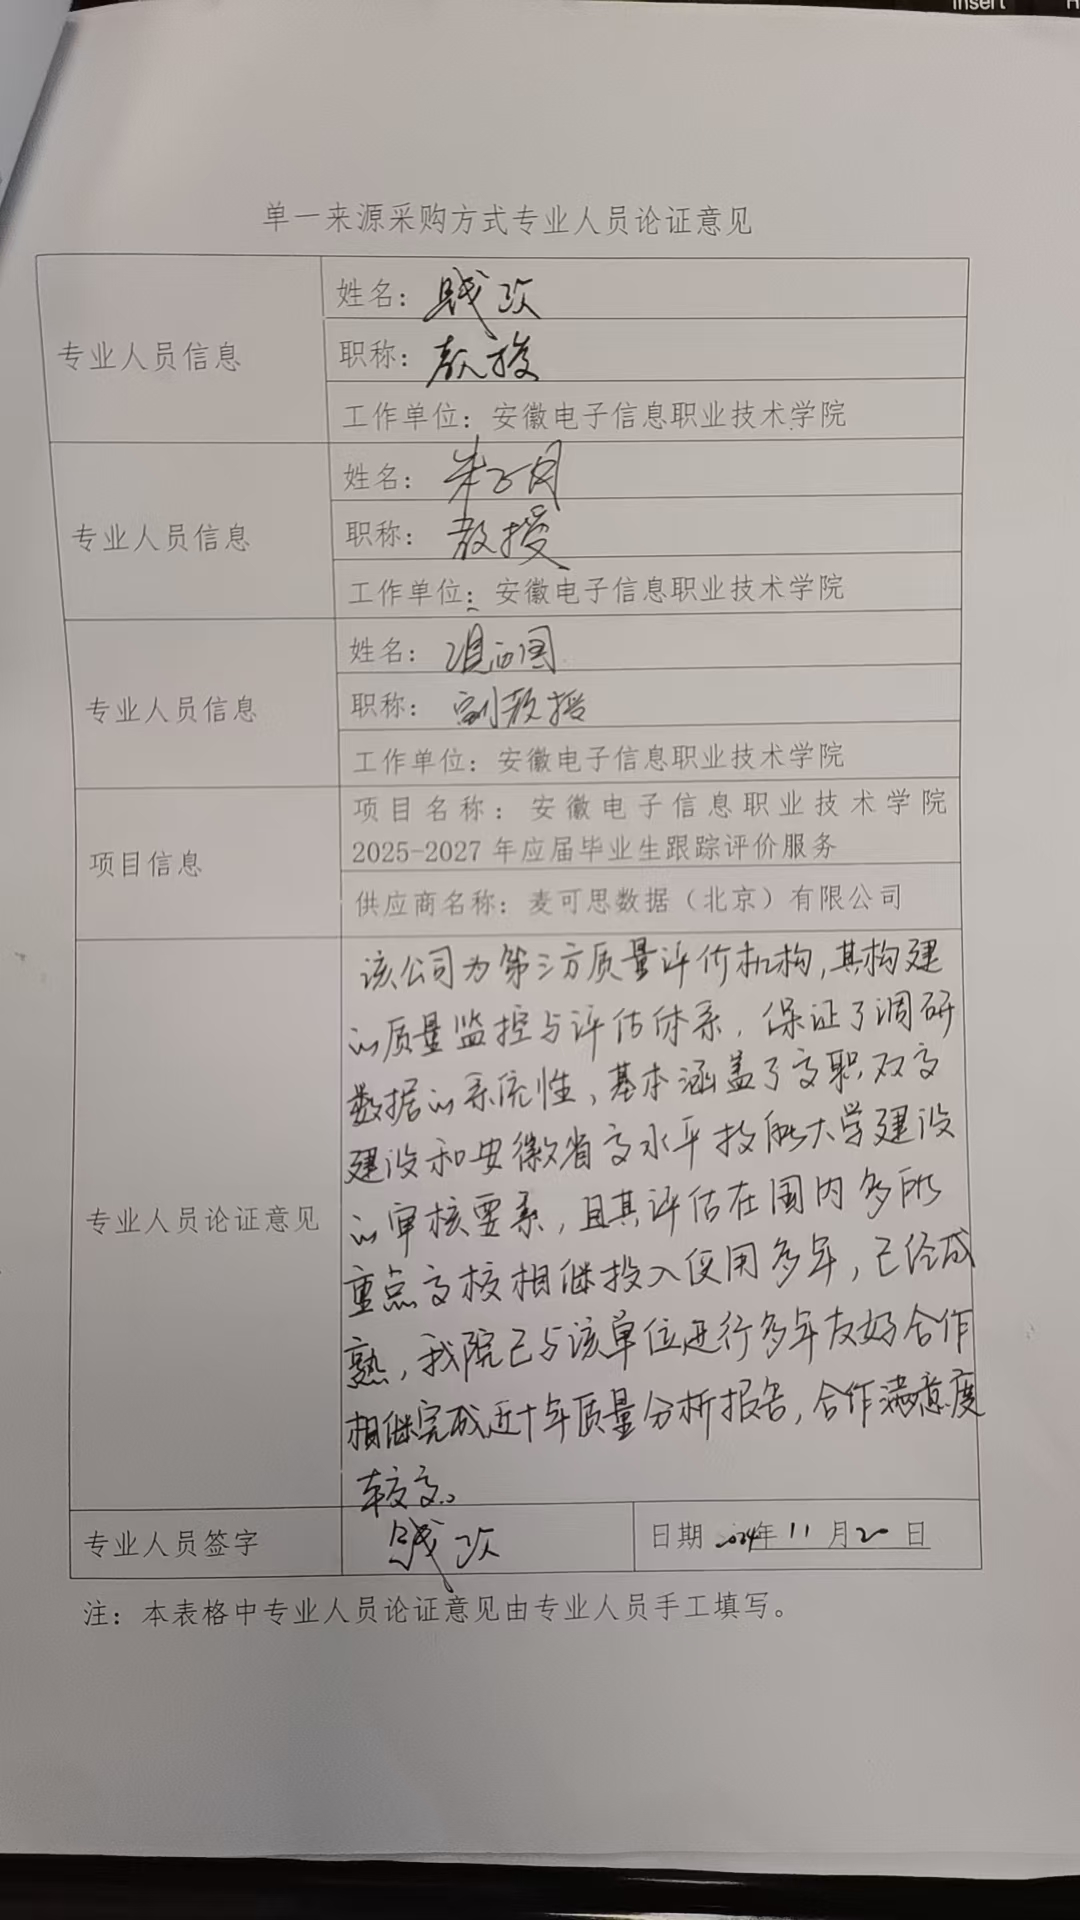 Insert
单一来源采购方式专业人员论证意见
专业人员信息
姓名：
职称：教授
工作单位：安徽电子信息职业技术学院
专业人员信息
姓名：朱子月
职称：教授
工作单位：安徽电子信息职业技术学院
专业人员信息
姓名：
职称：副教授
工作单位：安徽电子信息职业技术学院
项目信息
项目名称：安徽电子信息职业技术学院
2025-2027 年应届毕业生跟踪评价服务
供应商名称：麦可思数据（北京）有限公司
专业人员论证意见
该公司为第三方质量评价机构，其构建
的质量监控与评估体系，保证了调研
数据的系统性，基本涵盖了高职双高
建设和安徽省高水平技能大学建设
的审核要素，且其评估在国内多所
重点高校相继投入使用多年，已经成
熟，我院已与该单位进行多年友好合作
相继完成近十年质量分析报告，合作满意度
较高。
专业人员签字
日期 2024年 11 月 20 日
注：本表格中专业人员论证意见由专业人员手工填写。